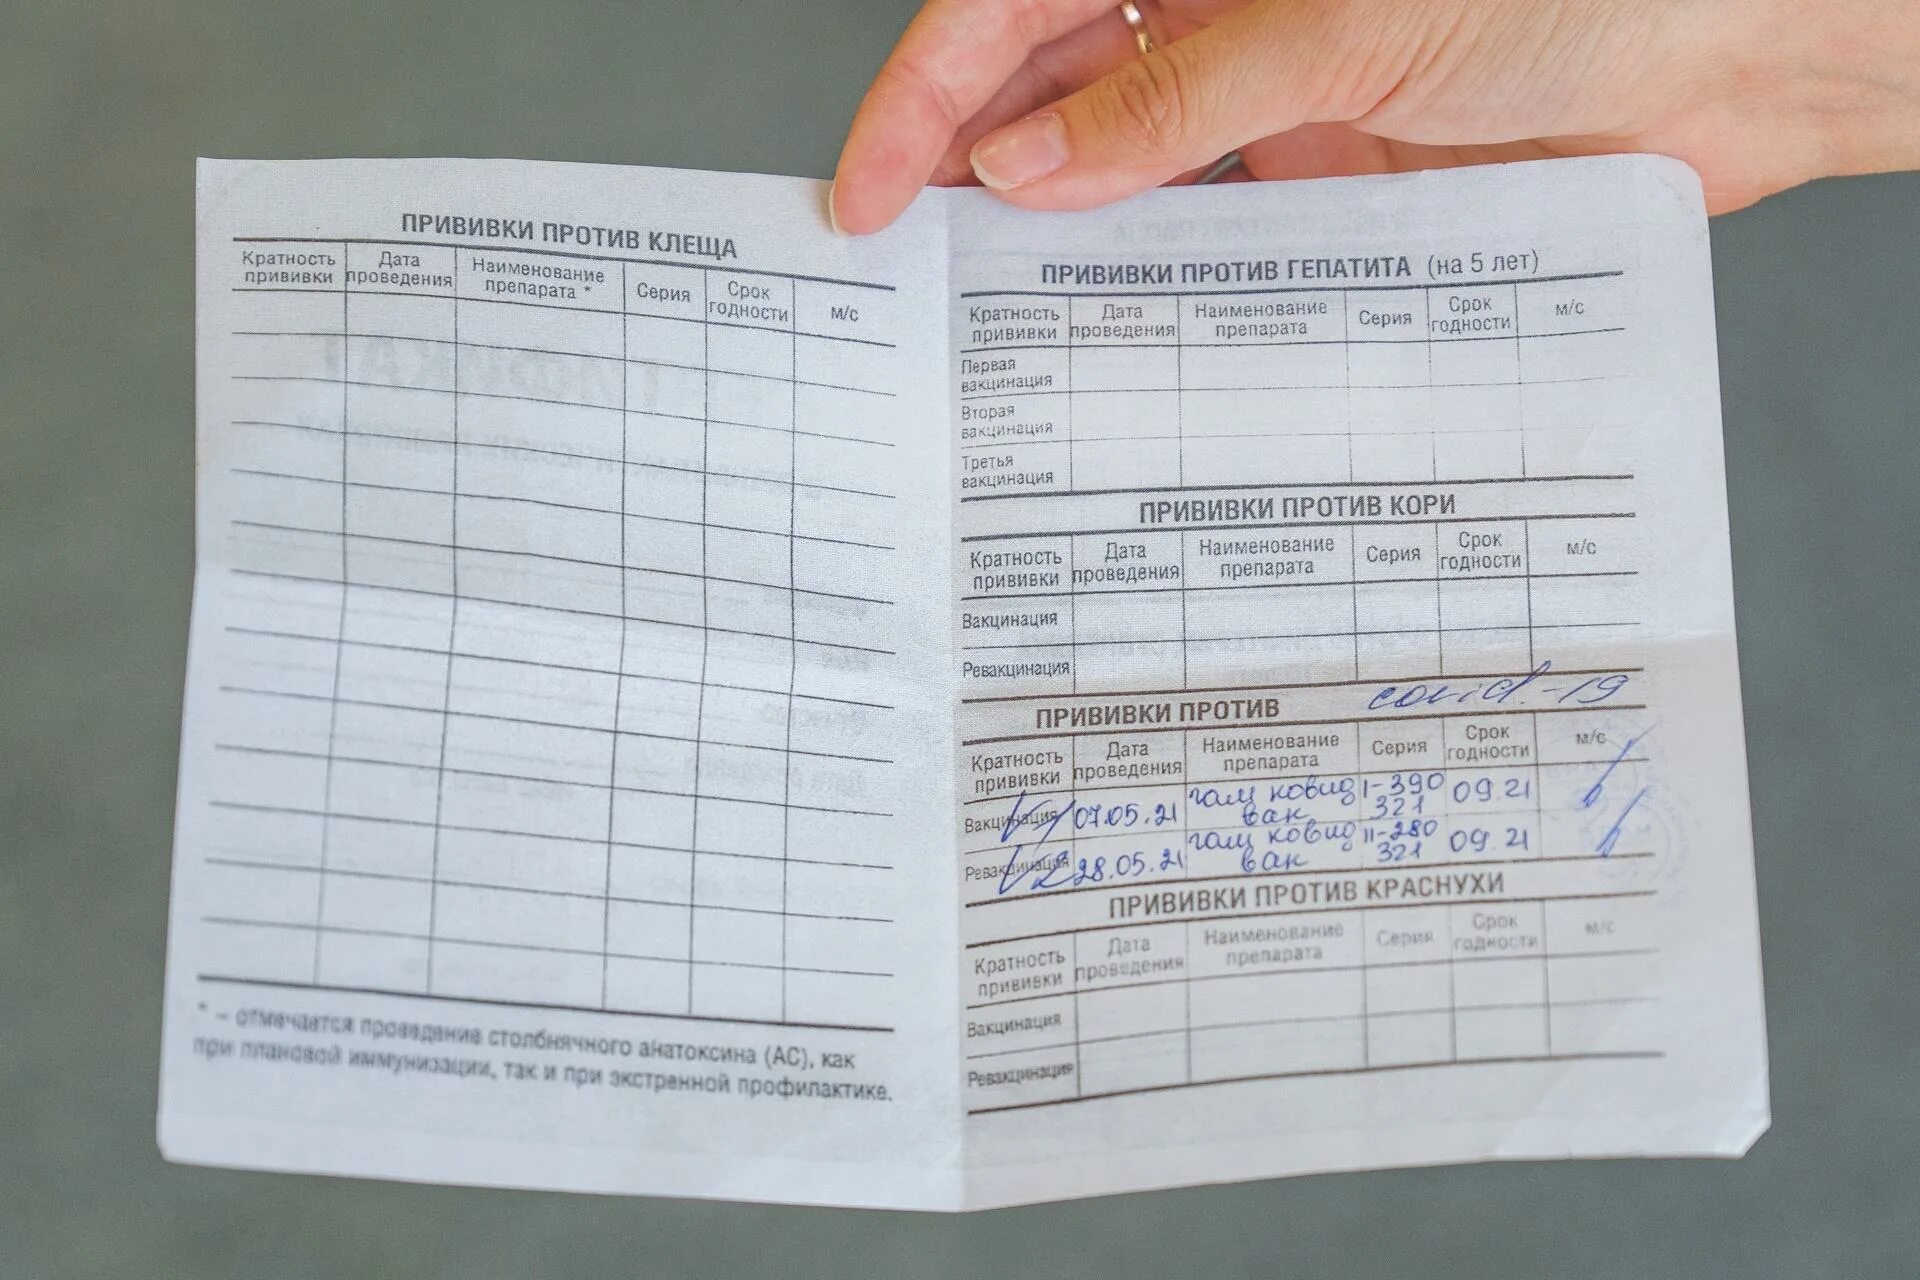 ПРИВИВКИ ПРОТИВ КЛЕЩА
Кратность прививки Дата проведения Наименование препарата * Серия Срок годности м/с
* – отмечается проведение столбнячного анатоксина (АС), как
при плановой иммунизации, так и при экстренной профилактике.
ПРИВИВКИ ПРОТИВ ГЕПАТИТА (на 5 лет)
Кратность прививки Дата проведения Наименование препарата Серия Срок годности м/с
Первая вакцинация
Вторая вакцинация
Третья вакцинация
ПРИВИВКИ ПРОТИВ КОРИ
Кратность прививки Дата проведения Наименование препарата Серия Срок годности м/с
Вакцинация
Ревакцинация
ПРИВИВКИ ПРОТИВ covid-19
Кратность прививки Дата проведения Наименование препарата Серия Срок годности м/с
Вакцинация V1 07.05.21 гам ковид вак I-390 321 09.21
Ревакцинация V2 28.05.21 гам ковид вак II-280 321 09.21
ПРИВИВКИ ПРОТИВ КРАСНУХИ
Кратность прививки Дата проведения Наименование препарата Серия Срок годности м/с
Вакцинация
Ревакцинация